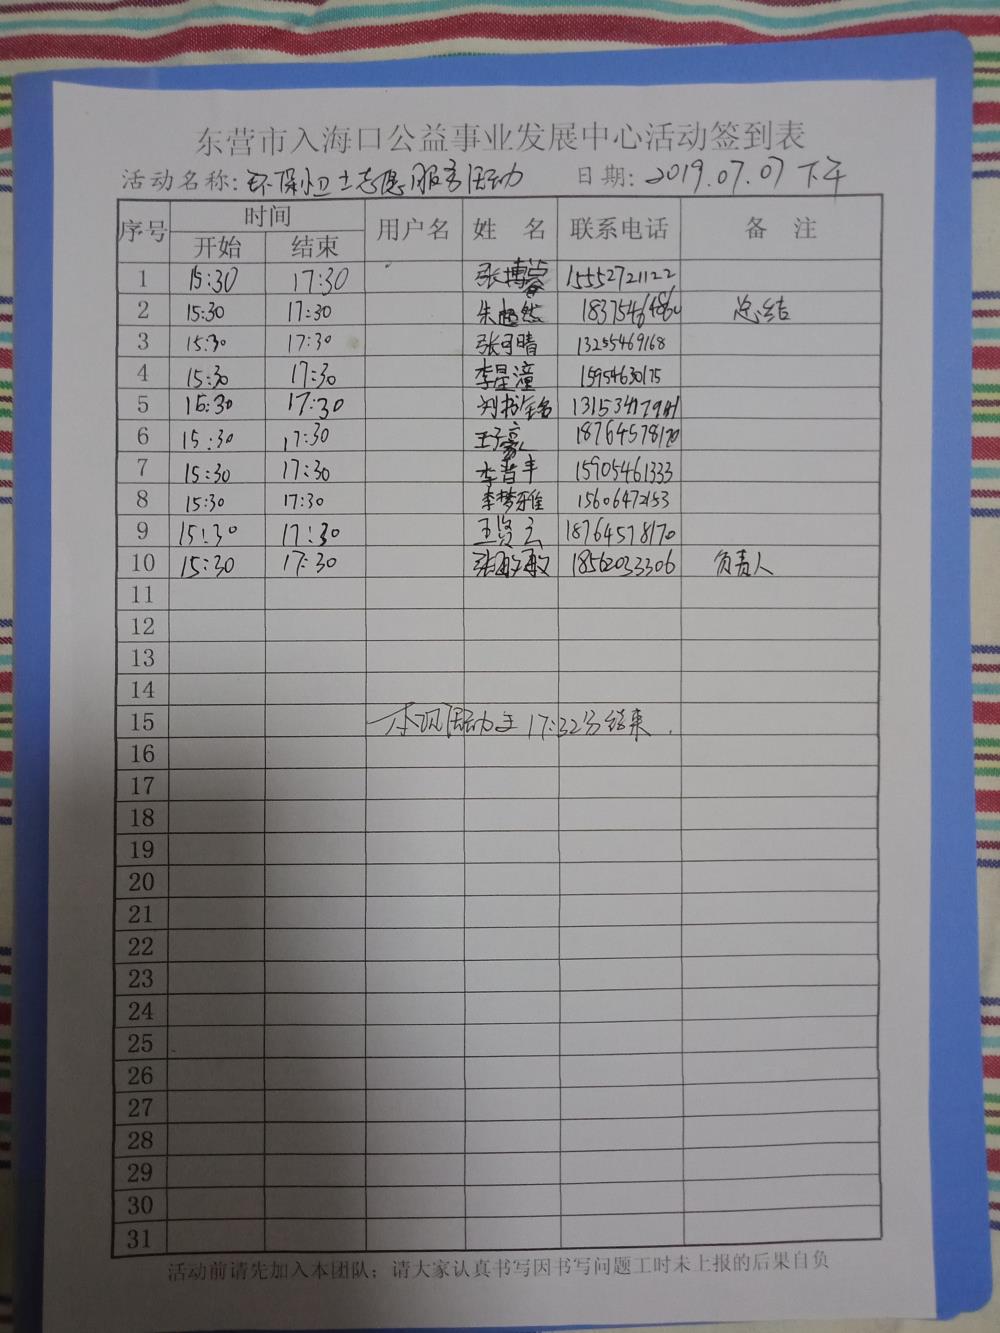 东营市入海口公益事业发展中心活动签到表
活动名称:环保小卫士志愿服务活动 日期:2019.07.07 下午
序号 时间 用户名 姓 名 联系电话 备 注
开始 结束
1 15:30 17:30 张博 15552721122
2 15:30 17:30 朱超然 总结
3 15:30 17:30 张可晴 13255469168
4 15:30 17:30 李星潼 15954630175
5 17:30 刘书铭
6 15:30 17:30 王子豪 18764578170
7 15:30 17:30 李普丰 15905461333
8 15:30 17:30 李梦雅 15606472153
9 15:30 17:30 王贤 18764578170
10 15:30 17:30 张敏敏 18562033306 负责人
11
12
13
14
15 本次活动于17:32分结束.
16
17
18
19
20
21
22
23
24
25
26
27
28
29
30
31
活动前请先加入本团队;请大家认真书写因书写问题工时未上报的后果自负